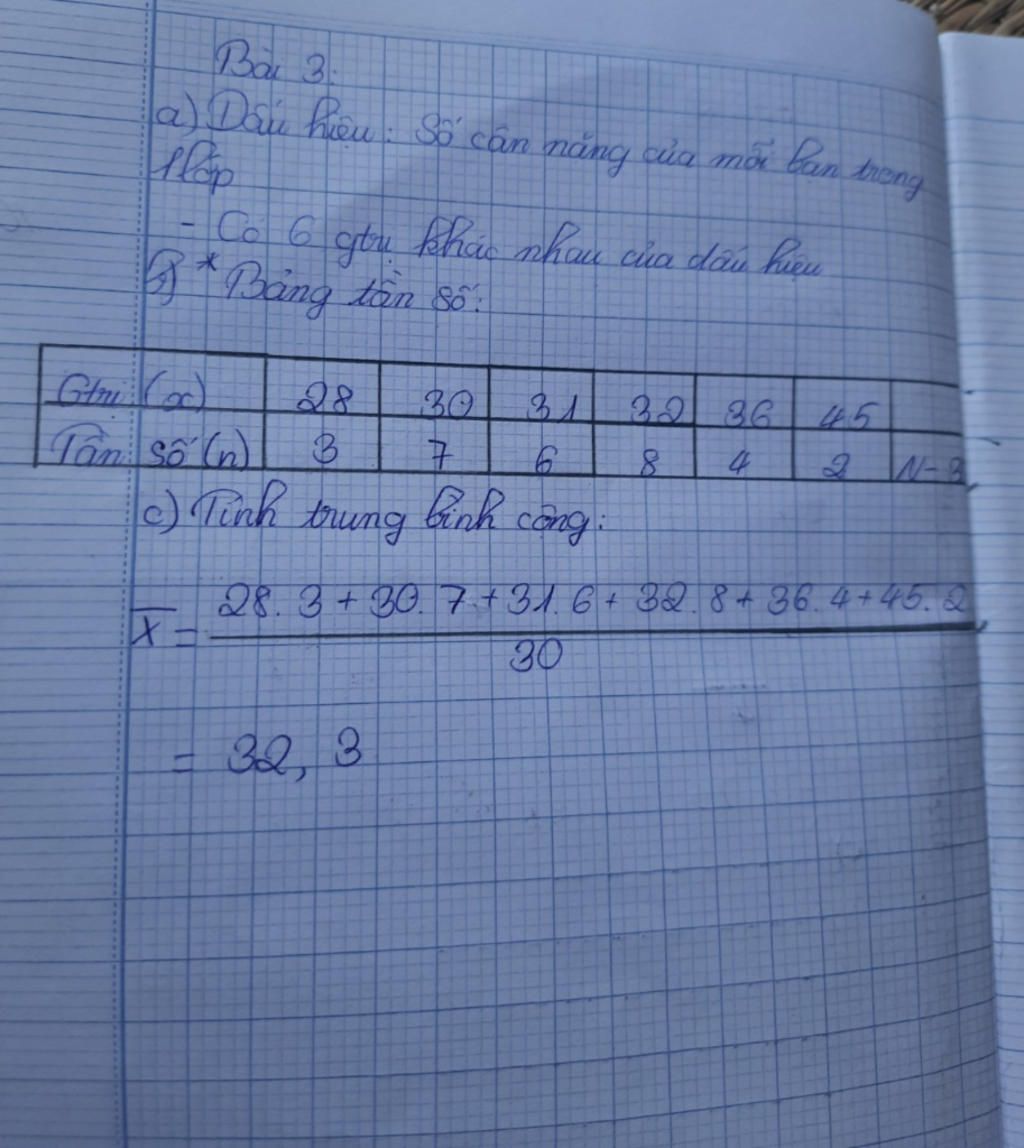 Bài 3:
a) Dấu hiệu: Số cân nặng của mỗi bạn trong
1 lớp
- Có 6 gtrị khác nhau của dấu hiệu
b) * Bảng tần số:
Gtrị (x) 28 30 31 32 36 45
Tần số (n) 3 7 6 8 4 2 N=3
c) Tính trung bình cộng:
X̄ = 28. 3 + 30. 7 + 31. 6 + 32. 8 + 36. 4 + 45. 2
30
= 32, 3